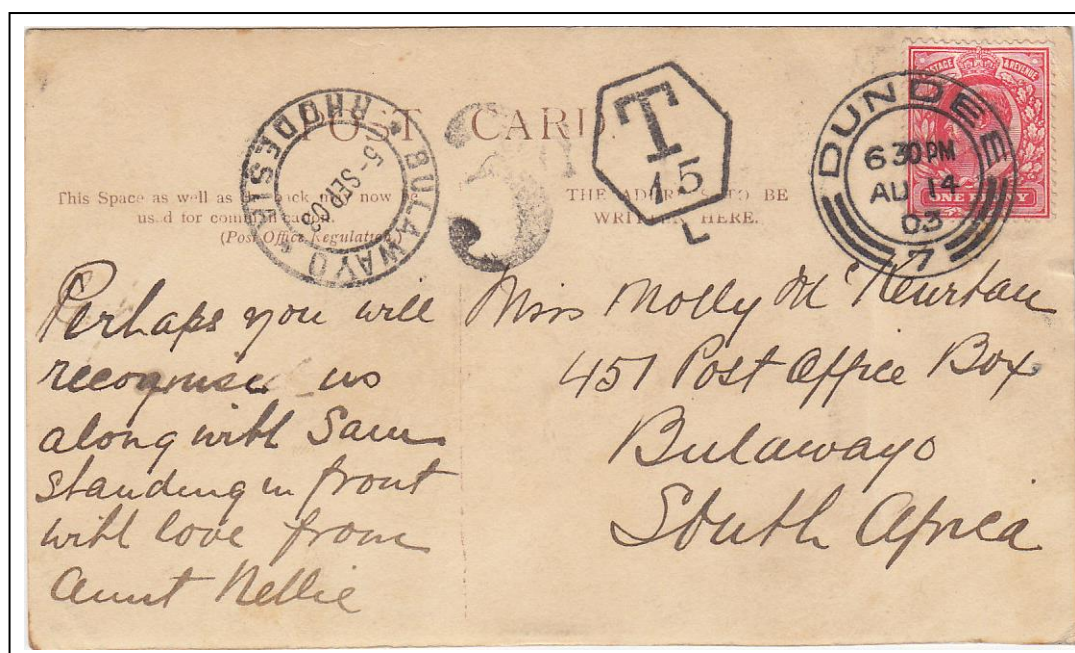 POST CARD.
This Space as well as back now
used for communication
(Post Office Regulation
THE ADDRESS TO BE
WRITTEN HERE.
BULAWAYO
RHODESIA
5- SEP 03
3
T
15
L
DUNDEE
6 30 PM
AU 14
03
7
POSTAGE & REVENUE
ONE PENNY
Perhaps you will
recognise us
along with Sam
standing in front
with love from
Aunt Nellie
Miss Molly
451 Post Office Box
Bulawayo
South Africa